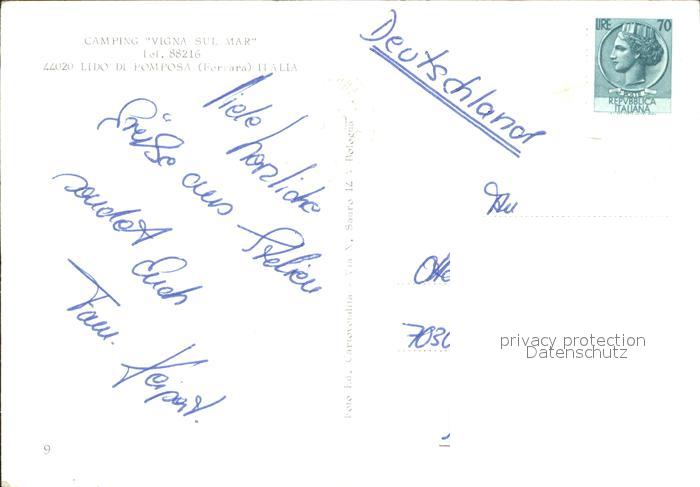 CAMPING "VIGNA SUL MAR"
Tel. 88216
44020 LIDO DI POMPOSA (Ferrara) ITALIA
Deutschland
LIRE 70
POSTE
REPVBBLICA
ITALIANA
Viele herzliche
Grüße aus Italien
sendet Euch
Fam.
An
7030
privacy protection
Datenschutz
Foto Ed. Cartovendita - Via N. Sauro 12 A Bologna
9